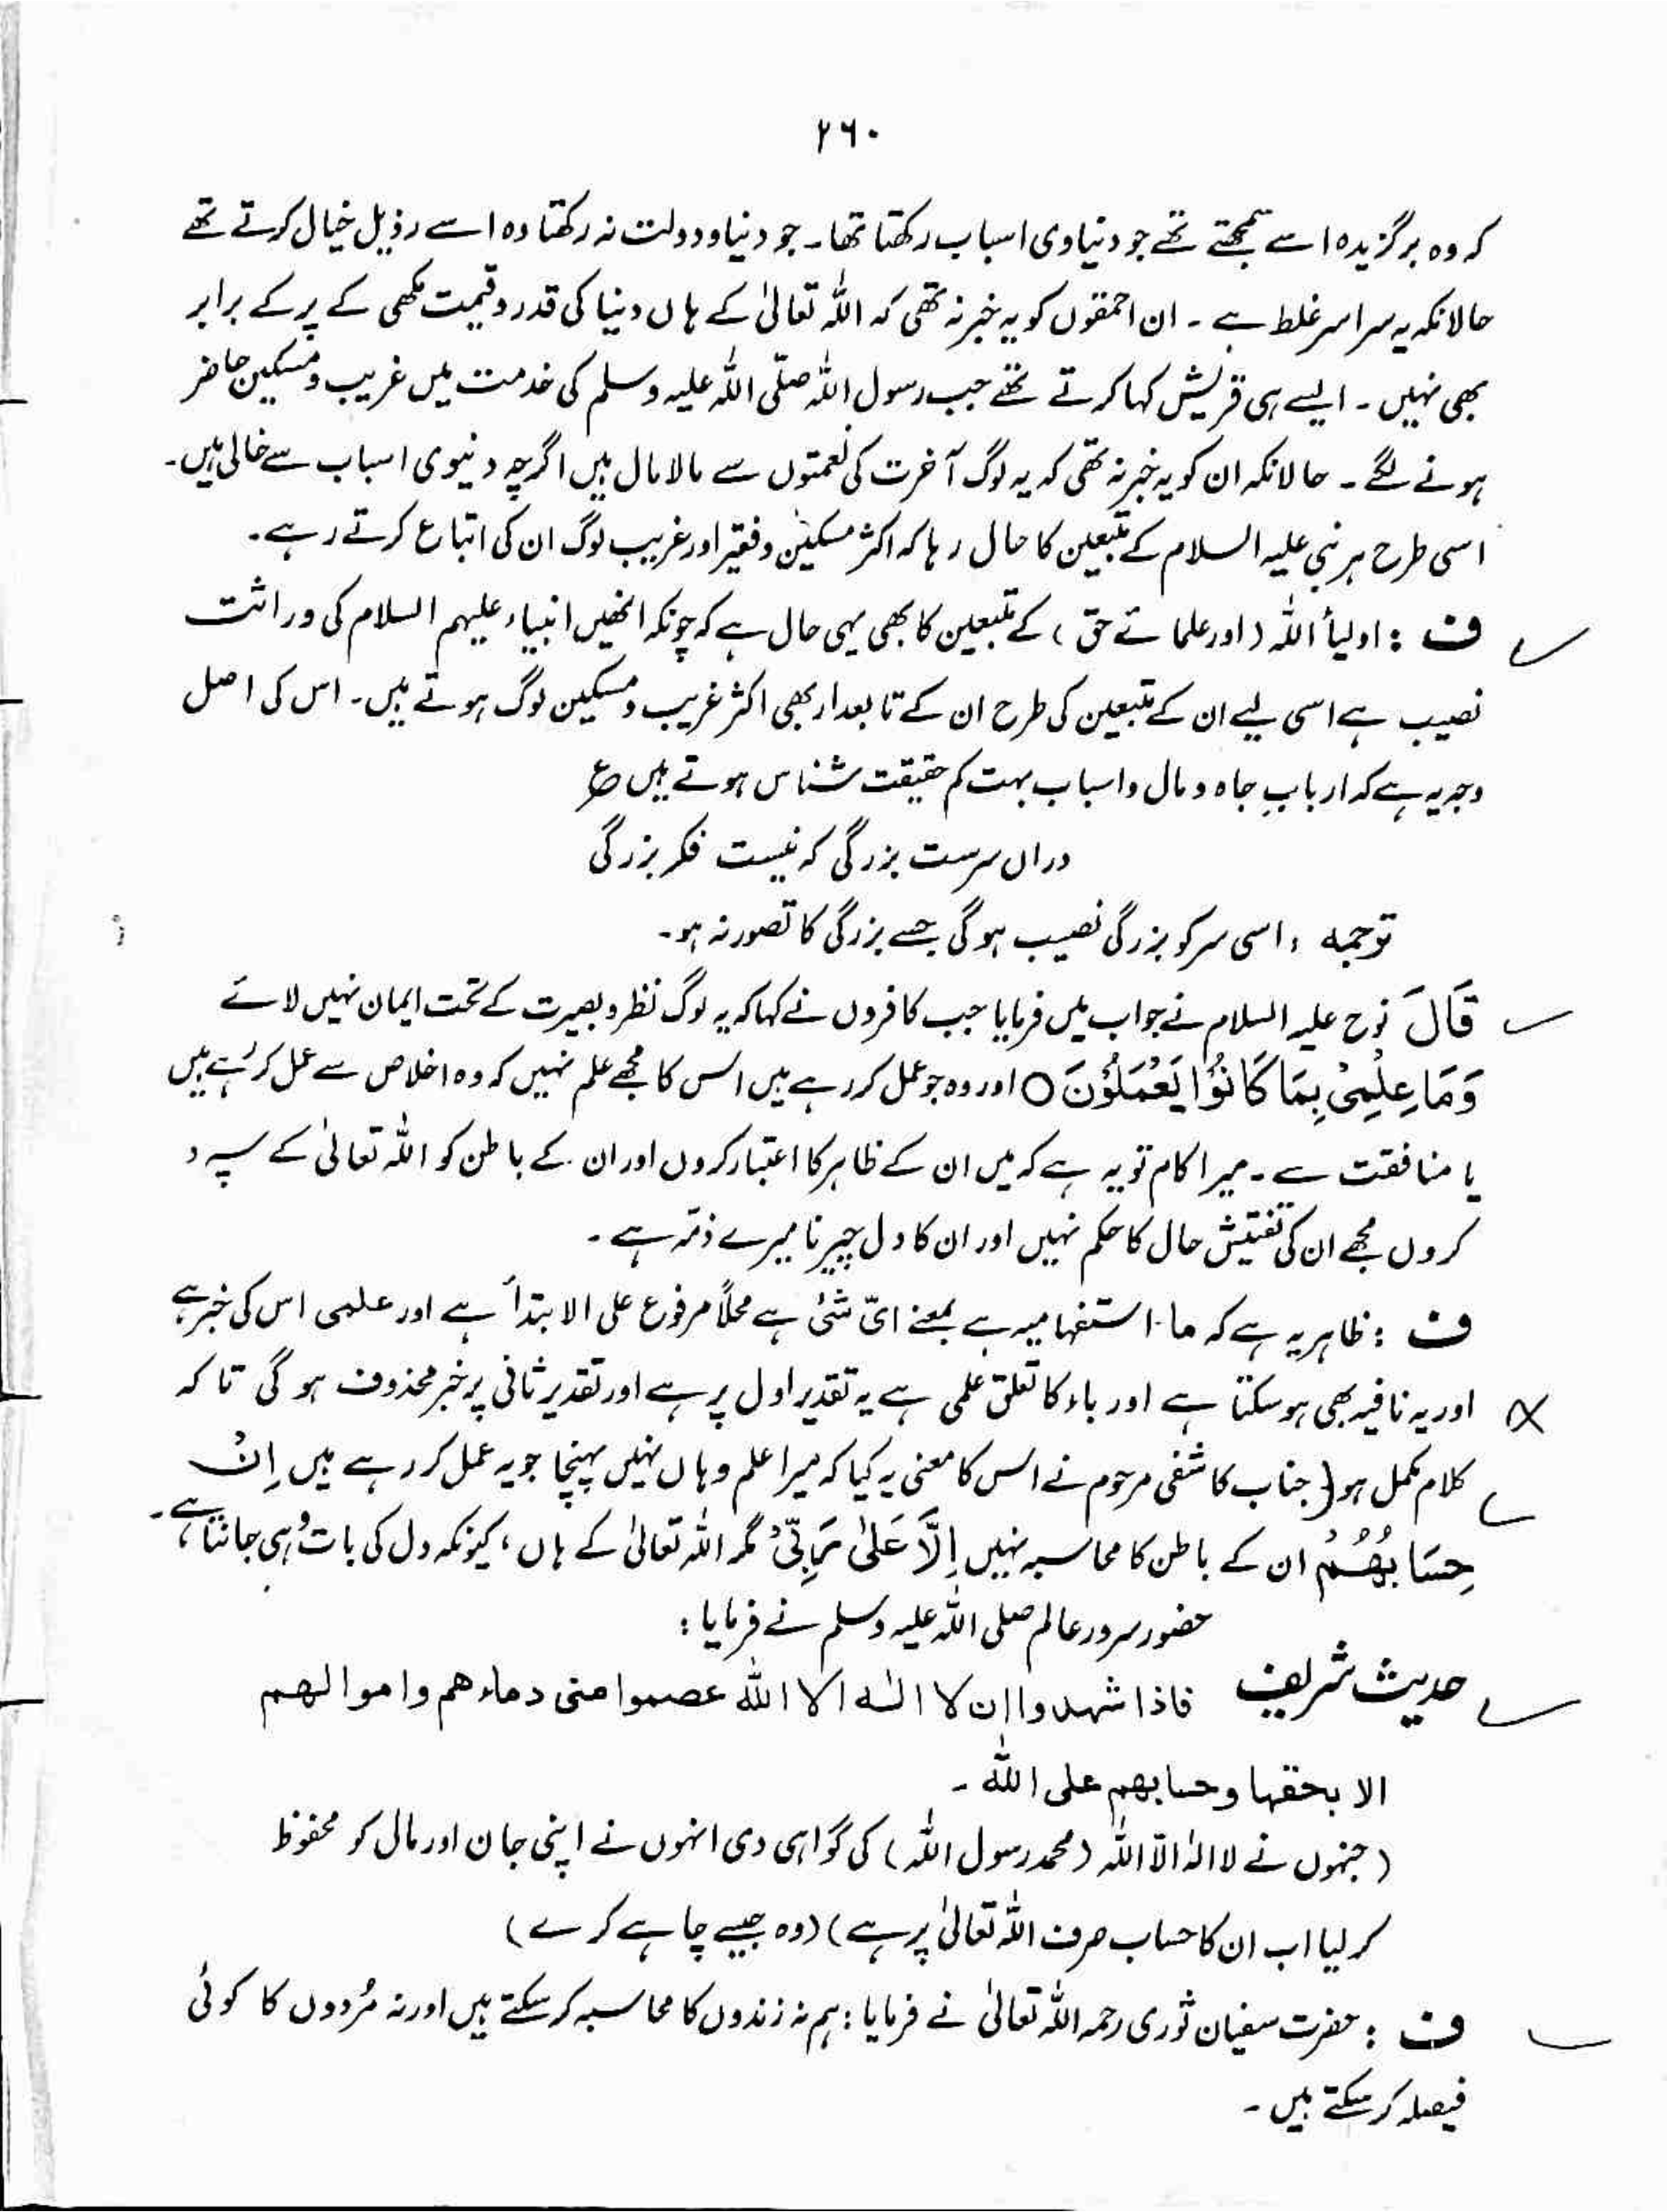 ۲۶۰
کہ وہ برگزیدہ اسے سمجھتے تھے جو دنیاوی اسباب رکھتا تھا۔ جو دنیا و دولت نہ رکھتا وہ اسے رذیل خیال کرتے تھے
حالانکہ یہ سراسر غلط ہے۔ ان احمقوں کو یہ خبر نہ تھی کہ اللہ تعالیٰ کے ہاں دنیا کی قدر و قیمت مکھی کے پر کے برابر
بھی نہیں۔ ایسے ہی قریش کہا کرتے تھے جب رسول اللہ صلّی اللہ علیہ وسلم کی خدمت میں غریب و مسکین حاضر
ہونے لگے۔ حالانکہ ان کو یہ خبر نہ تھی کہ یہ لوگ آخرت کی نعمتوں سے مالا مال ہیں اگرچہ دنیوی اسباب سے خالی ہیں۔
اسی طرح ہر نبی علیہ السلام کے متبعین کا حال رہا کہ اکثر مسکین و فقیر اور غریب لوگ ان کی اتباع کرتے رہے۔
ف : اولیأ اللہ (اور علمائے حق) کے متبعین کا بھی یہی حال ہے کہ چونکہ انھیں انبیاء علیہم السلام کی وراثت
نصیب ہے اسی لیے ان کے متبعین کی طرح ان کے تابعدار بھی اکثر غریب و مسکین لوگ ہوتے ہیں۔ اس کی اصل
وجہ یہ ہے کہ اربابِ جاہ و مال و اسباب بہت کم حقیقت شناس ہوتے ہیں ع
دراں سرست بزرگی کہ نیست فکر بزرگی
ترجمہ : اسی سر کو بزرگی نصیب ہوگی جسے بزرگی کا تصور نہ ہو۔
قَالَ نوح علیہ السلام نے جواب میں فرمایا جب کافروں نے کہا کہ یہ لوگ نظر و بصیرت کے تحت ایمان نہیں لائے
وَمَا عِلْمِیْ بِمَا کَانُوْا یَعْمَلُوْنَ ○ اور وہ جو عمل کر رہے ہیں اس کا مجھے علم نہیں کہ وہ اخلاص سے عمل کر رہے ہیں
یا منافقت سے۔ میرا کام تو یہ ہے کہ میں ان کے ظاہر کا اعتبار کروں اور ان کے باطن کو اللہ تعالیٰ کے سپرد
کروں مجھے ان کی تفتیش حال کا حکم نہیں اور ان کا دل چیرنا میرے ذمّہ ہے۔
ف : ظاہر یہ ہے کہ ما استفہامیہ ہے بمعنے ایّ شیٔ ہے محلاً مرفوع علی الابتدأ ہے اور علمی اس کی خبر ہے
اور یہ نافیہ بھی ہو سکتا ہے اور باء کا تعلق علمی ہے یہ تقدیر اول پر ہے اور تقدیر ثانی پر خبر محذوف ہو گی تاکہ
کلام مکمل ہو (جناب کاشفی مرحوم نے اس کا معنی یہ کیا کہ میرا علم وہاں نہیں پہنچا جو یہ عمل کر رہے ہیں اِنْ
حِسَابُھُمْ ان کے باطن کا محاسبہ نہیں اِلَّا عَلٰی رَبِّیْ مگر اللہ تعالیٰ کے ہاں ، کیونکہ دل کی بات وُہی جانتا ہے۔
حضور سرور عالم صلی اللہ علیہ وسلم نے فرمایا :
حدیث شریف فاذا شہدوا ان لا الٰہ الا اللہ عصموا منی دماءھم واموالھم
الا بحقہا وحسابھم علی اللہ ۔
(جنہوں نے لا الٰہ الّا اللہ (محمد رسول اللہ) کی گواہی دی انہوں نے اپنی جان اور مال کو محفوظ
کر لیا اب ان کا حساب صرف اللہ تعالیٰ پر ہے) (وہ جیسے چاہے کرے)
ف : حضرت سفیان ثوری رحمہ اللہ تعالیٰ نے فرمایا : ہم نہ زندوں کا محاسبہ کر سکتے ہیں اور نہ مُردوں کا کوئی
فیصلہ کر سکتے ہیں ۔